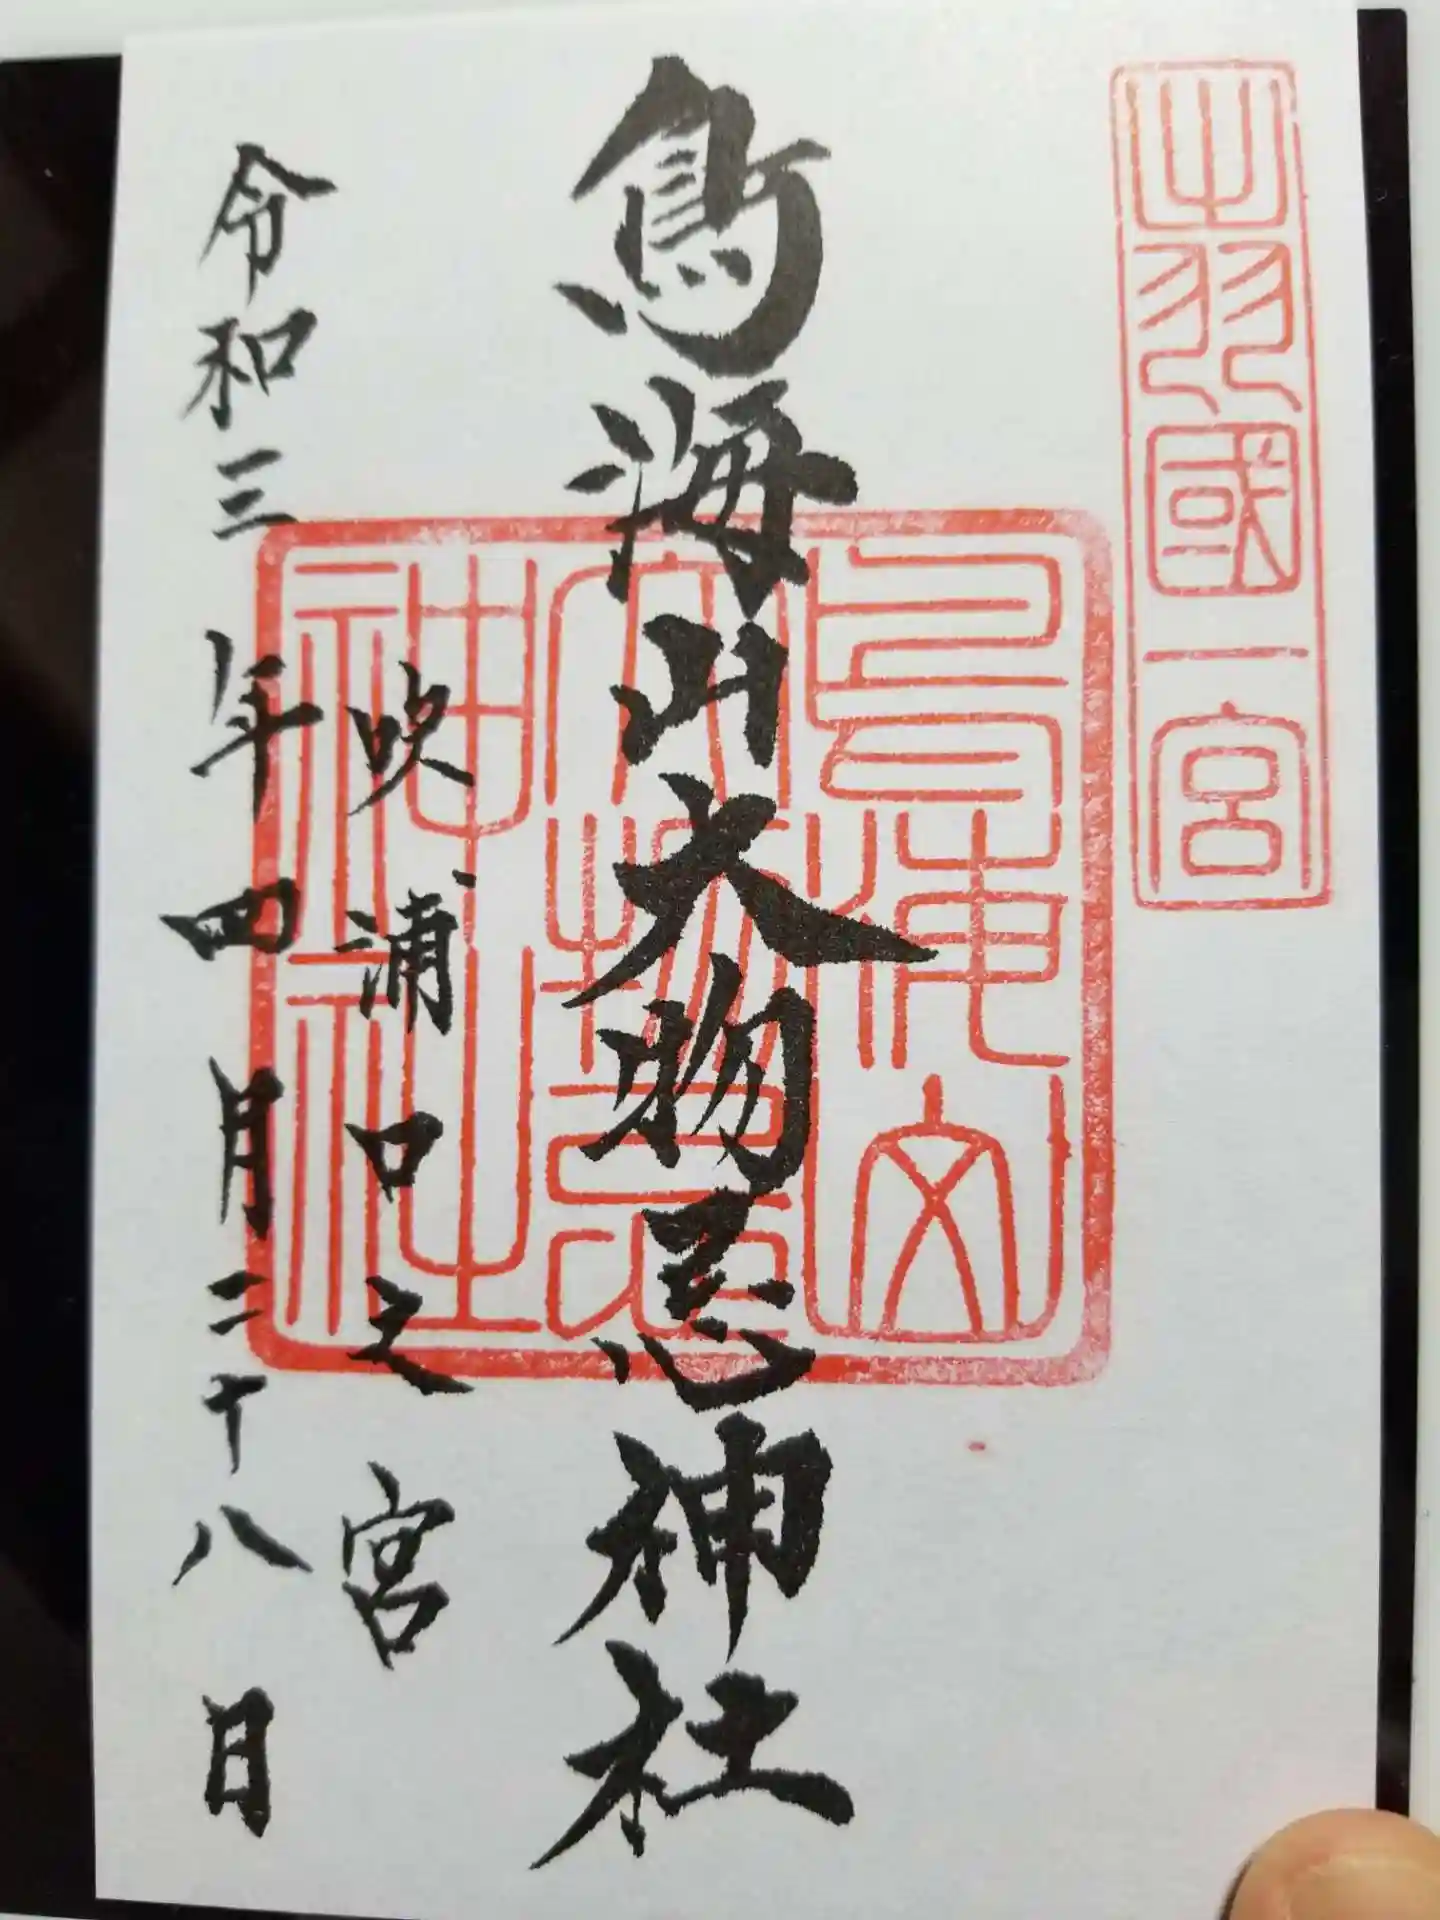 出羽國一宮
鳥海山大物忌神社
鳥海山
大物忌
神社
吹浦口之宮
令和三年四月二十八日